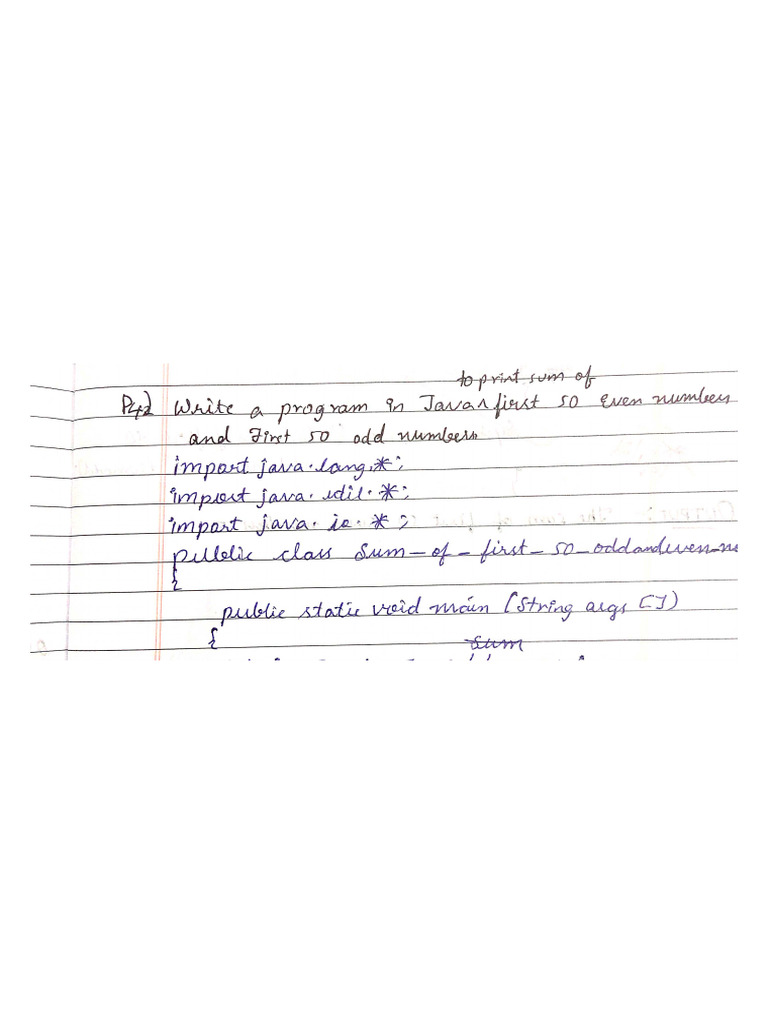 to print sum of
P42) Write a program in Java ^ first 50 even numbers
and First 50 odd numbers.
import java.lang.*;
import java.util.*;
import java.io.*;
public class Sum_of_first_50_oddandeven_n
{
public static void main (String args [])
{
sum